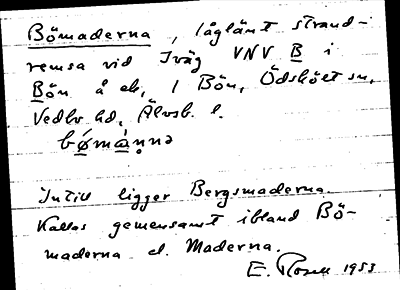 Bömaderna, låglänt strand-
remsa vid Iväg VNV B i
Bön å ek, 1 Bön, Ödskölt sn,
Vedbo hd, Älvsb. l.
bømànnə
Intill ligger Bergsmaderna.
Kallas gemensamt ibland Bö-
maderna el. Maderna.
E. Rosell 1953